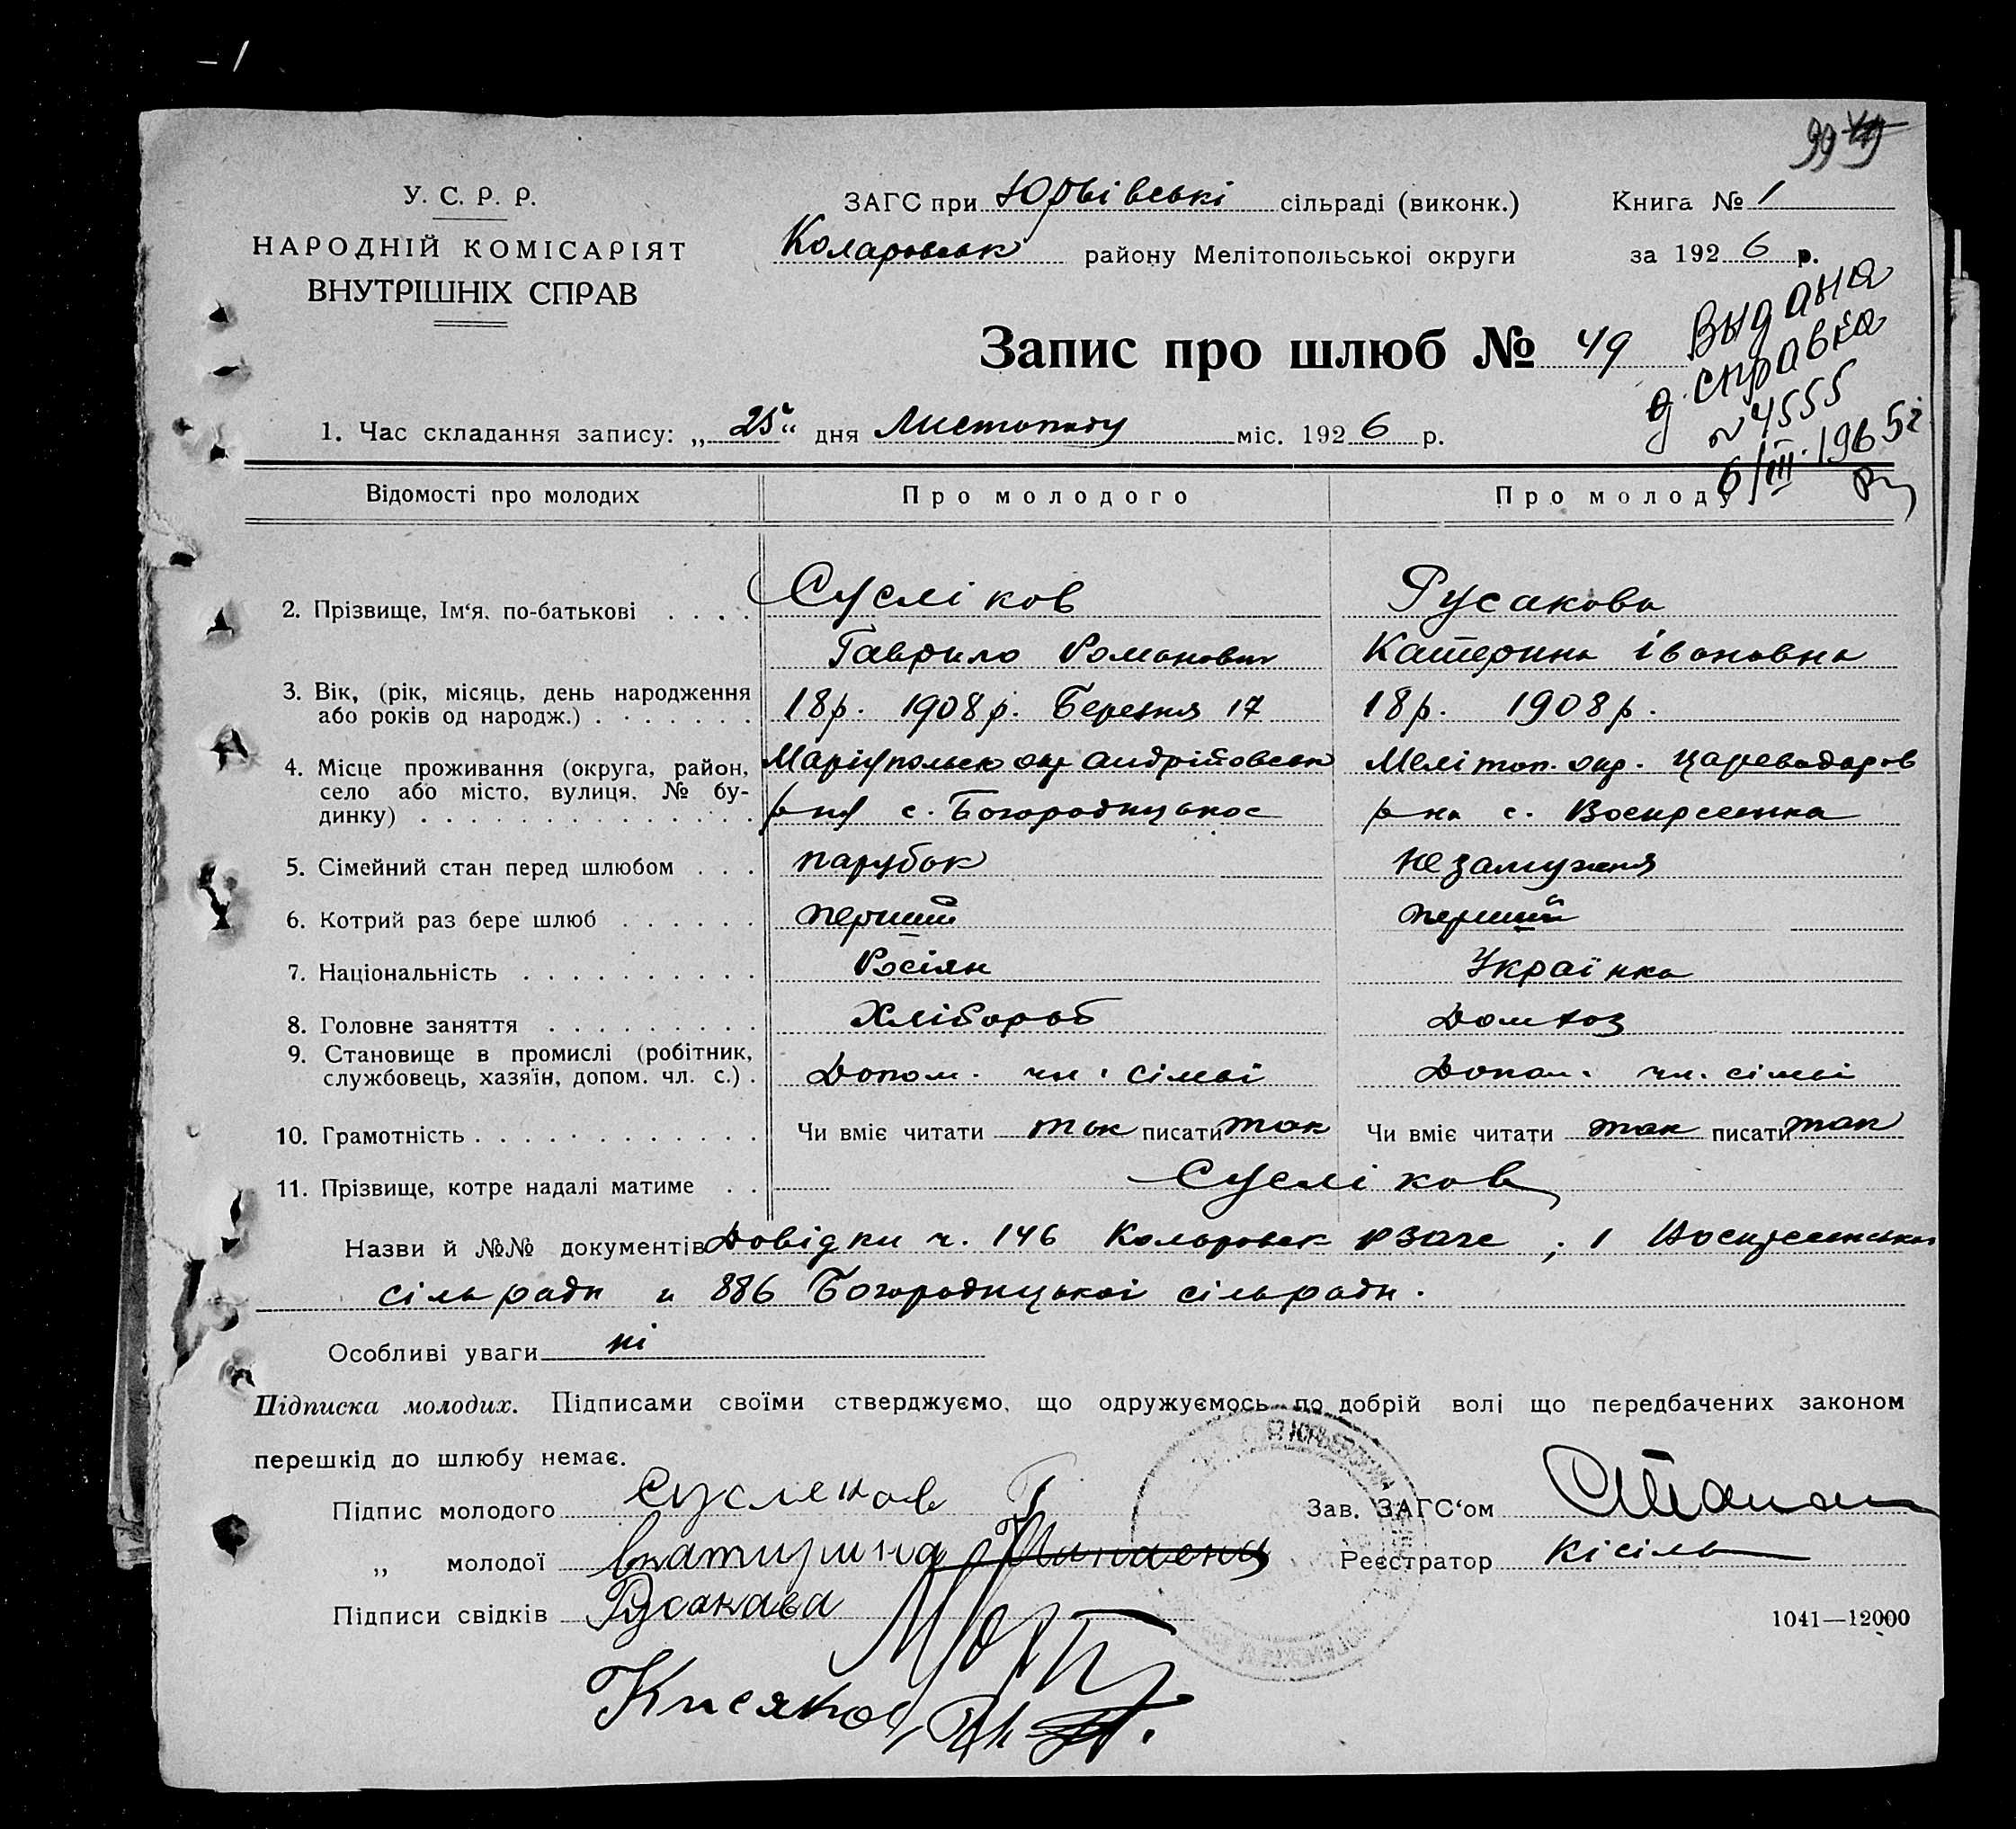 99
У. С. Р. Р.
НАРОДНІЙ КОМІСАРІЯТ
ВНУТРІШНІХ СПРАВ
ЗАГС при Юрьівські сільраді (виконк.)
Коларовськ району Мелітопольськоі округи
Книга № 1
за 1926 р.
Запис про шлюб № 49
Выдана
справка
№ 4555
6/III 1965 г
1. Час складання запису: „25“ дня Листопаду міс. 1926 р.
Відомості про молодих Про молодого Про молоду
2. Прізвище, Ім‘я, по-батькові . . . . Сусліков Русакова
Гаврило Романович Катерина Івановна
3. Вік, (рік, місяць, день народження 18р. 1908р. Березня 17 18р. 1908р.
або років од народж.) . . . . . . .
4. Місце проживання (округа, район, Маріупольськ окр Андрійовськ Меліт­оп. окр. Царевадаров
село або місто, вулиця, № бу- р-ну с. Богородицькое р-на с. Воскресенка
динку) . . . . . . . . . . . . . .
5. Сімейний стан перед шлюбом . . . парубок незамужня
6. Котрий раз бере шлюб . . . . . . перший перший
7. Національність . . . . . . . . . . Росіян Українка
8. Головне заняття . . . . . . . . . Хлібороб Домхоз
9. Становище в промислі (робітник,
службовець, хазяїн, допом. чл. с.) . Допом. чл. сімьі Допом. чл. сімьі
10. Грамотність . . . . . . . . . . . . Чи вміє читати так писати так Чи вміє читати так писати так
11. Прізвище, котре надалі матиме . . Сусліков
Назви й №№ документів Довідки ч. 146 Коларовск ; 1 Воскресенської
сільради и 886 Богородицькоі сільради.
Особливі уваги ні
Підписка молодих. Підписами своїми стверджуємо, що одружуємось по добрій волі що передбачених законом
перешкід до шлюбу немає.
Підпис молодого Суслеков Г Зав. ЗАГС‘ом
„ молодої Екатирина Реєстратор Кісіль
Підписи свідків Русакава
1041—12000